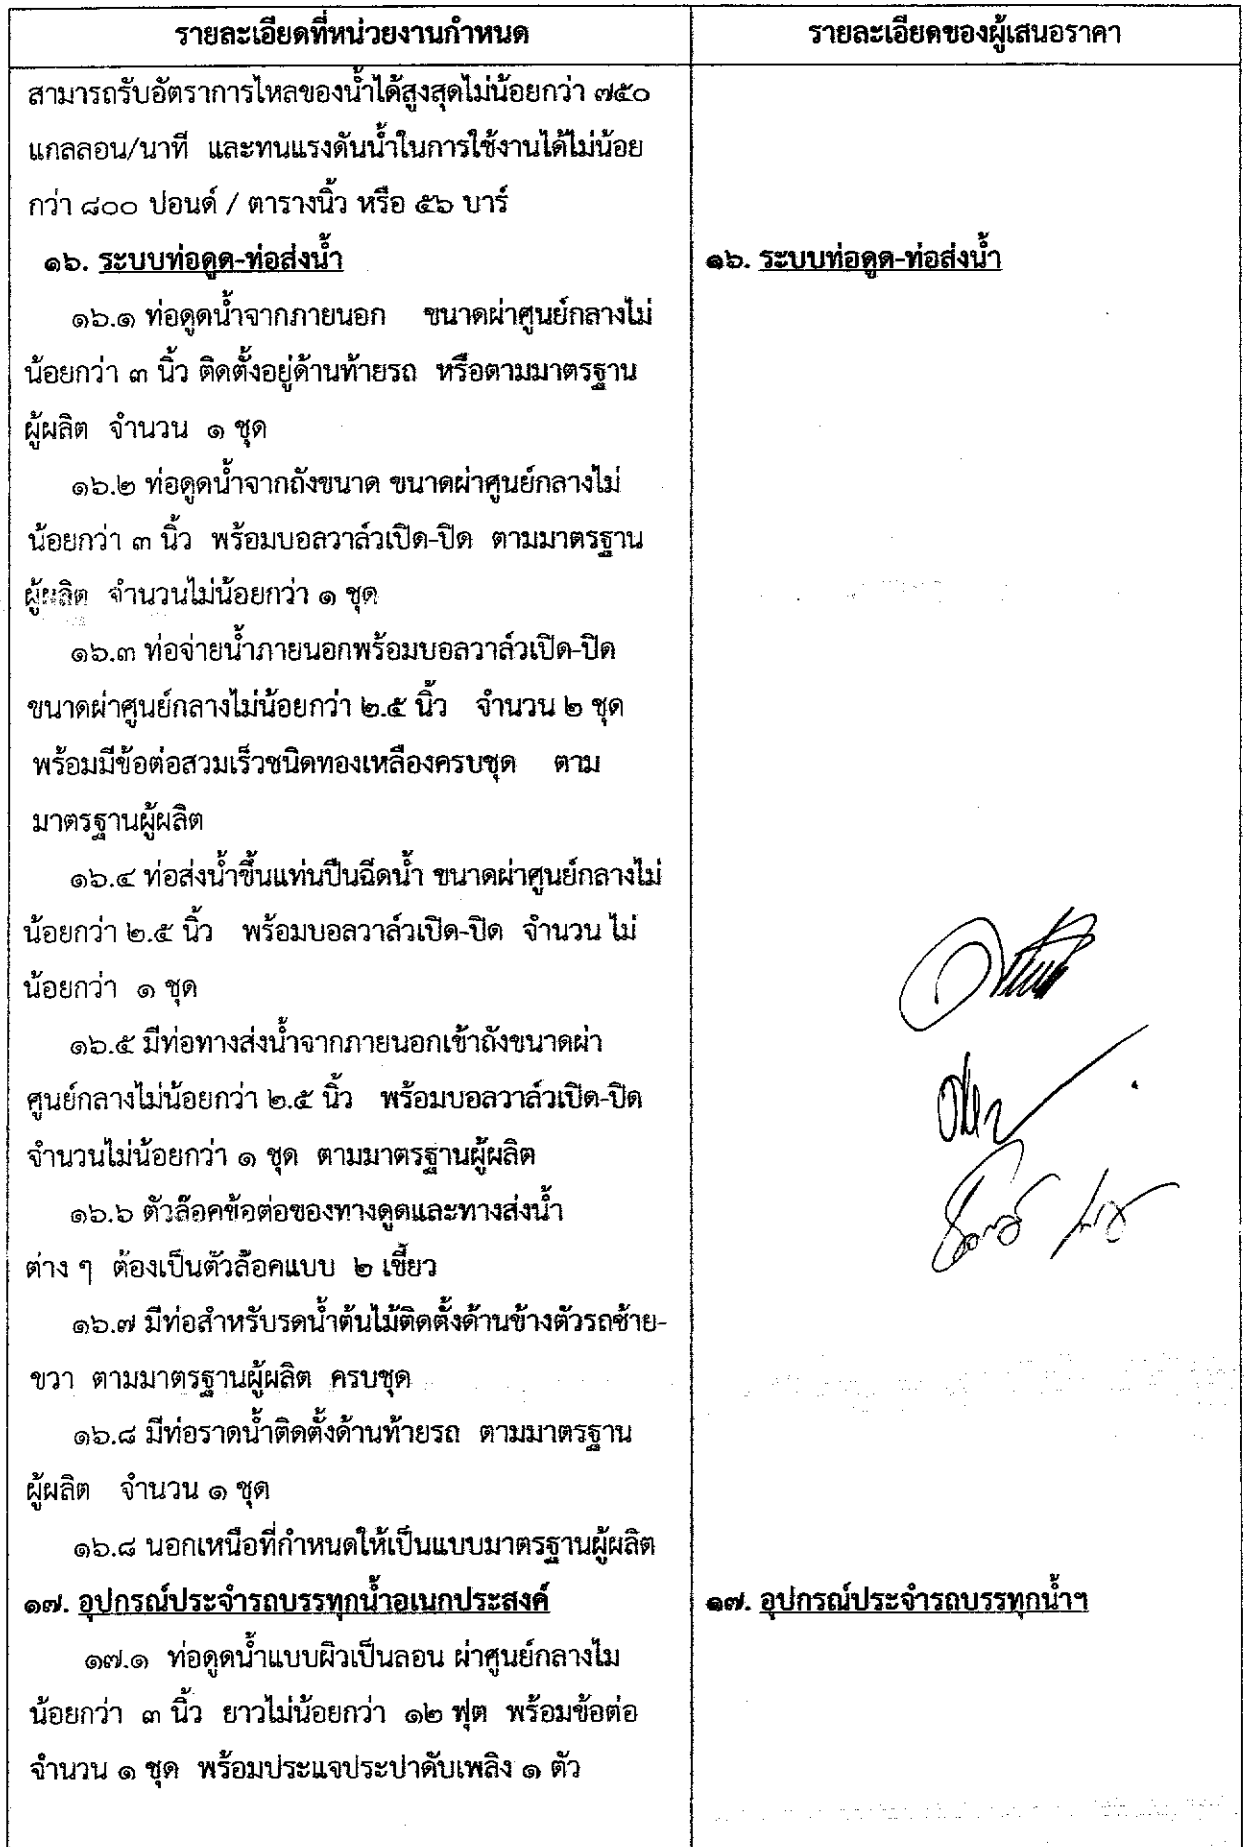 รายละเอียดที่หน่วยงานกำหนด
รายละเอียดของผู้เสนอราคา
สามารถรับอัตราการไหลของน้ำได้สูงสุดไม่น้อยกว่า ๗๕๐
แกลลอน/นาที และทนแรงดันน้ำในการใช้งานได้ไม่น้อย
กว่า ๘๐๐ ปอนด์ / ตารางนิ้ว หรือ ๕๖ บาร์
๑๖. ระบบท่อดูด-ท่อส่งน้ำ
๑๖. ระบบท่อดูด-ท่อส่งน้ำ
๑๖.๑ ท่อดูดน้ำจากภายนอก ขนาดผ่าศูนย์กลางไม่
น้อยกว่า ๓ นิ้ว ติดตั้งอยู่ด้านท้ายรถ หรือตามมาตรฐาน
ผู้ผลิต จำนวน ๑ ชุด
๑๖.๒ ท่อดูดน้ำจากถังขนาด ขนาดผ่าศูนย์กลางไม่
น้อยกว่า ๓ นิ้ว พร้อมบอลวาล์วเปิด-ปิด ตามมาตรฐาน
ผู้ผลิต จำนวนไม่น้อยกว่า ๑ ชุด
๑๖.๓ ท่อจ่ายน้ำภายนอกพร้อมบอลวาล์วเปิด-ปิด
ขนาดผ่าศูนย์กลางไม่น้อยกว่า ๒.๕ นิ้ว จำนวน ๒ ชุด
พร้อมมีข้อต่อสวมเร็วชนิดทองเหลืองครบชุด ตาม
มาตรฐานผู้ผลิต
๑๖.๔ ท่อส่งน้ำขึ้นแท่นปืนฉีดน้ำ ขนาดผ่าศูนย์กลางไม่
น้อยกว่า ๒.๕ นิ้ว พร้อมบอลวาล์วเปิด-ปิด จำนวน ไม่
น้อยกว่า ๑ ชุด
๑๖.๕ มีท่อทางส่งน้ำจากภายนอกเข้าถังขนาดผ่า
ศูนย์กลางไม่น้อยกว่า ๒.๕ นิ้ว พร้อมบอลวาล์วเปิด-ปิด
จำนวนไม่น้อยกว่า ๑ ชุด ตามมาตรฐานผู้ผลิต
๑๖.๖ ตัวล๊อคข้อต่อของทางดูดและทางส่งน้ำ
ต่าง ๆ ต้องเป็นตัวล๊อคแบบ ๒ เขี้ยว
๑๖.๗ มีท่อสำหรับรดน้ำต้นไม้ติดตั้งด้านข้างตัวรถซ้าย-
ขวา ตามมาตรฐานผู้ผลิต ครบชุด
๑๖.๘ มีท่อราดน้ำติดตั้งด้านท้ายรถ ตามมาตรฐาน
ผู้ผลิต จำนวน ๑ ชุด
๑๖.๘ นอกเหนือที่กำหนดให้เป็นแบบมาตรฐานผู้ผลิต
๑๗. อุปกรณ์ประจำรถบรรทุกน้ำอเนกประสงค์
๑๗. อุปกรณ์ประจำรถบรรทุกน้ำฯ
๑๗.๑ ท่อดูดน้ำแบบผิวเป็นลอน ผ่าศูนย์กลางไม
น้อยกว่า ๓ นิ้ว ยาวไม่น้อยกว่า ๑๒ ฟุต พร้อมข้อต่อ
จำนวน ๑ ชุด พร้อมประแจประปาดับเพลิง ๑ ตัว